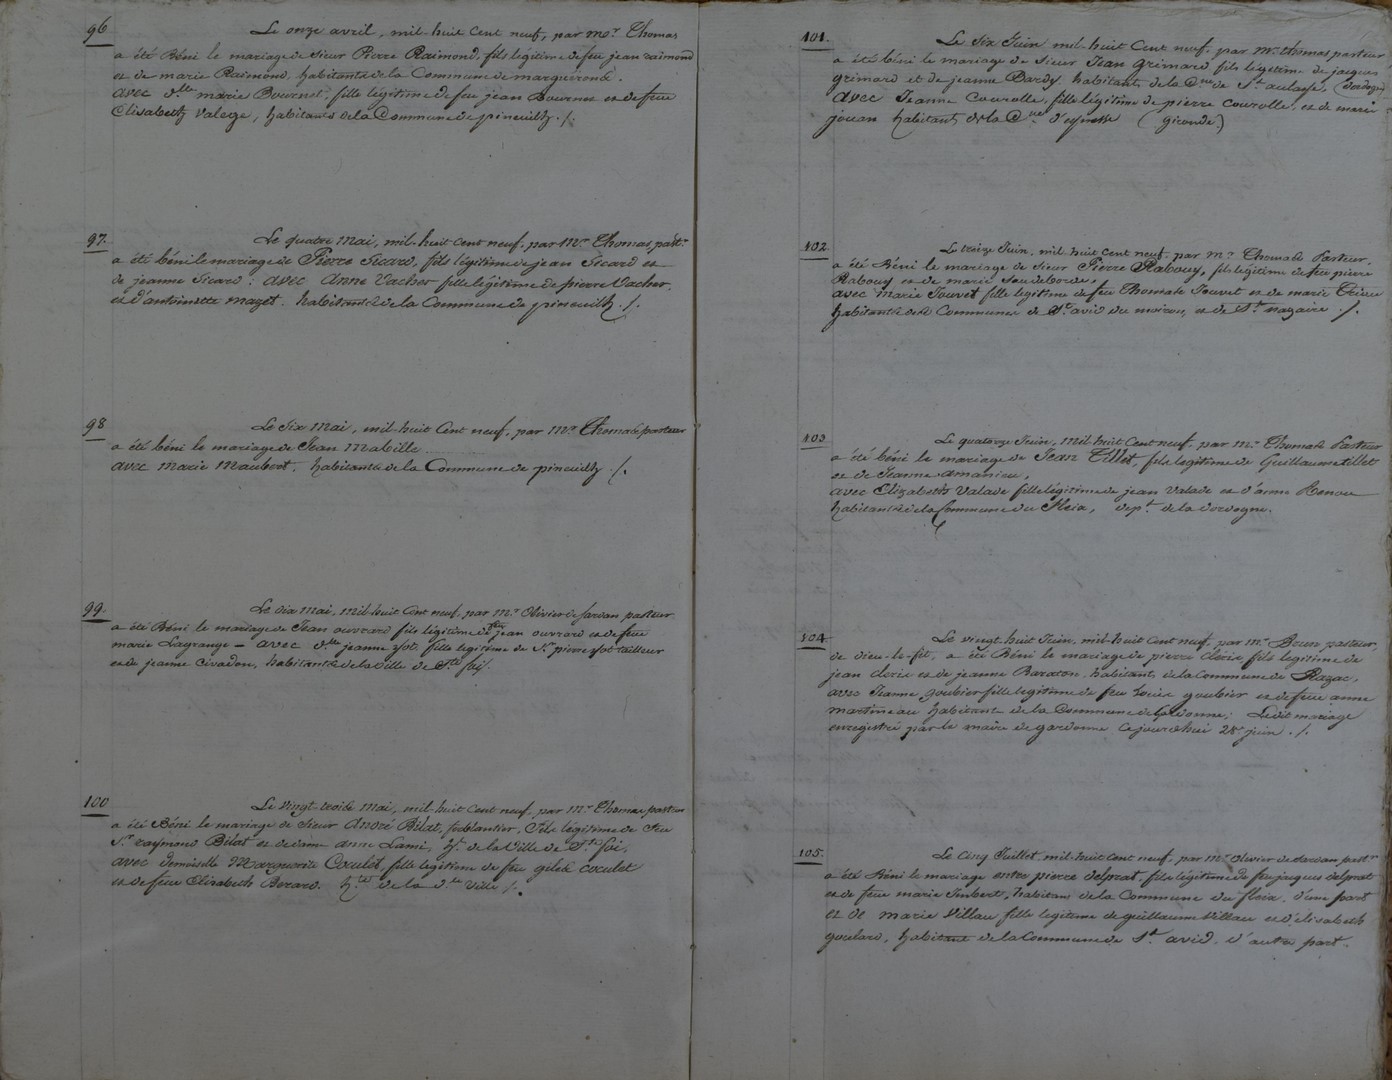 96
Le onze avril, mil-huit cent neuf, par mor. Thomas
a été Béni le mariage de sieur Pierre Raimond, fils légitime de feu jean raimond
et de marie Raimond, habitants de la Commune de margueronh.
avec d.lle marie Bournet, fille légitime de feu jean Bournet et de feue
Elisabeth Valege, habitants de la Commune de pineuilh ./.
97.
Le quatre mai, mil-huit cent neuf, par mr. Thomas past.r
a été béni le mariage de Pierre Sicard, fils légitime de jean Sicard et
de jeanne Sicard : avec Anne Vacher fille légitime de pierre Vacher,
et d'antoinette mazet. habitants de la Commune de pineuilh ./.
98
Le six mai, mil-huit cent neuf, par mr. Thomas pasteur
a été béni le mariage de Jean Mabille
avec Marie Maubert. habitants de la Commune de pineuilh ./.
99.
Le dix mai, mil-huit cent neuf, par mr. Olivier de Sardan pasteur
a été Béni le mariage de Jean ouvrard fils légitime de feu jean ouvrard et de feue
marie Lagrange - avec d.lle jeanne jot, fille légitime de Sr. pierre jot tailleur
et de jeanne Civadon, habitants de la ville de Ste. foi ./.
100
Le vingt-trois mai, mil-huit cent neuf, par mr. Thomas pasteur
a été Béni le mariage de Sieur André Bilat, ferblantier, fils légitime de feu
Sr. raymond Bilat et de dame anne Lami, h.t de la ville de Ste. foi,
avec demoiselle Marguerite Coculet fille légitime de feu gilet coculet
et de feue Elisabeth Berard. h.ts de la d.te ville ./.
101.
Le six Juin mil-huit cent neuf, par mr. thomas pasteur
a été béni le mariage de sieur Jean Grimard fils légitime de jacques
grimard et de jeanne Dardy habitant de la Cne. de St. aulaye, (Dordogne)
avec Jeanne Courolle, fille légitime de pierre courolle, et de marie
jouan habitant de la Cne d'eynesse (Gironde)
102.
Le treize Juin, mil-huit cent neuf, par mr. Thomas Pasteur,
a été Béni le mariage de Sieur Pierre Rabouy, fils légitime de feu pierre
Rabouy et de marie Soudeborde.
avec marie Jouvet fille légitime de feu Thomas Jouvet et de marie
habitants des Communes de St. avid du moiron, et de St. nazaire ./.
103
Le quatorze Juin, mil-huit cent neuf, par mr. Thomas Pasteur
a été béni le mariage de Jean Tillet, fils légitime de Guillaume tillet
et de Jeanne amanieu,
avec Elizabeth Valade fille légitime de jean Valade et d'anne Renou
habitants de la Commune du Fleix, dep.t de la dordogne.
104.
Le vingt-huit Juin, mil-huit cent neuf, par mr. Brun pasteur,
de dieu-le-fit, a été Béni le mariage de pierre derix fils légitime de
jean derix et de jeanne Baraton, habitant de la Commune de Razac,
avec Jeanne goubier fille légitime de feu Louis goubier et de feue anne
martineau habitante de la Commune de Gardonne ; Ledit mariage
enregistré par le maire de gardonne ce jourd'hui 28. juin ./.
105.
Le cinq Juillet, mil-huit cent neuf, par mr. Olivier de Sardan past.r
a été Béni le mariage entre pierre delprat, fils légitime de feu jacques delprat
et de feue marie Imbert, habitant de la Commune du fleix, d'une part
et de marie Villau fille légitime de guillaume Villau et d'élisabeth
goulard, habitant de la Commune de St. avid. d'autre part.